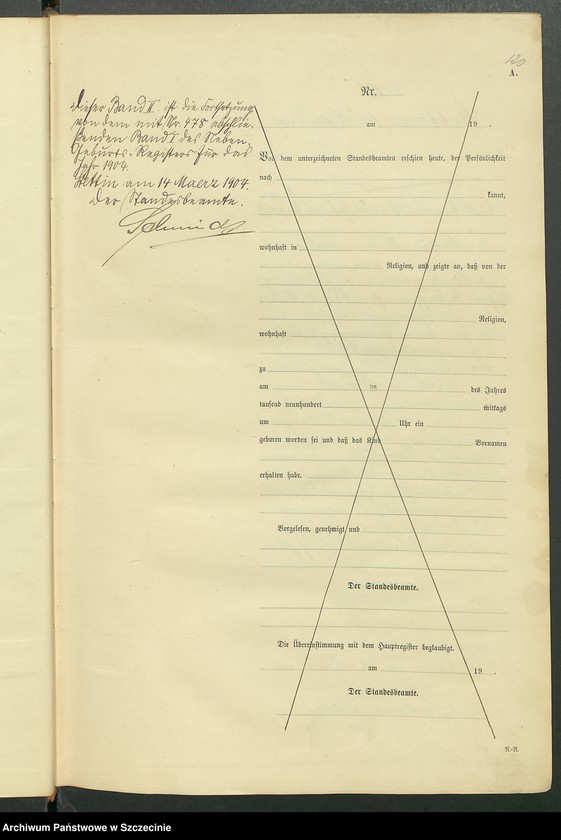 120
A.
Nr.
Dieser Band II. ist die Fortsetzung
von dem mit Nr. 478 abschlie-
ßenden Band I des Neben-
Geburts-Registers für das
Jahr 1904.
Stettin am 14 Maerz 1904.
Der Standesbeamte.
Schmidt
am 19 .
Vor dem unterzeichneten Standesbeamten erschien heute, der Persönlichkeit
nach
kannt,
wohnhaft in
Religion, und zeigte an, daß von der
Religion,
wohnhaft
zu
am ten des Jahres
tausend neunhundert mittags
um Uhr ein
geboren worden sei und daß das Kind Vornamen
erhalten habe.
Vorgelesen, genehmigt und
Der Standesbeamte.
Die Übereinstimmung mit dem Hauptregister beglaubigt.
am 19 .
Der Standesbeamte.
N.-R.
Archiwum Państwowe w Szczecinie